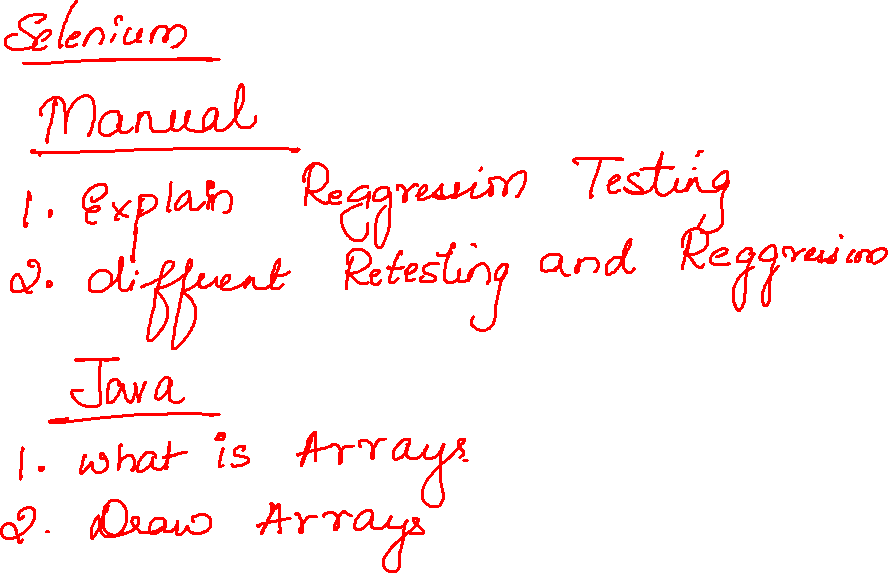 Selenium
Manual
1. Explain Reggression Testing
2. different Retesting and Reggression
Java
1. what is Arrays
2. Draw Arrays